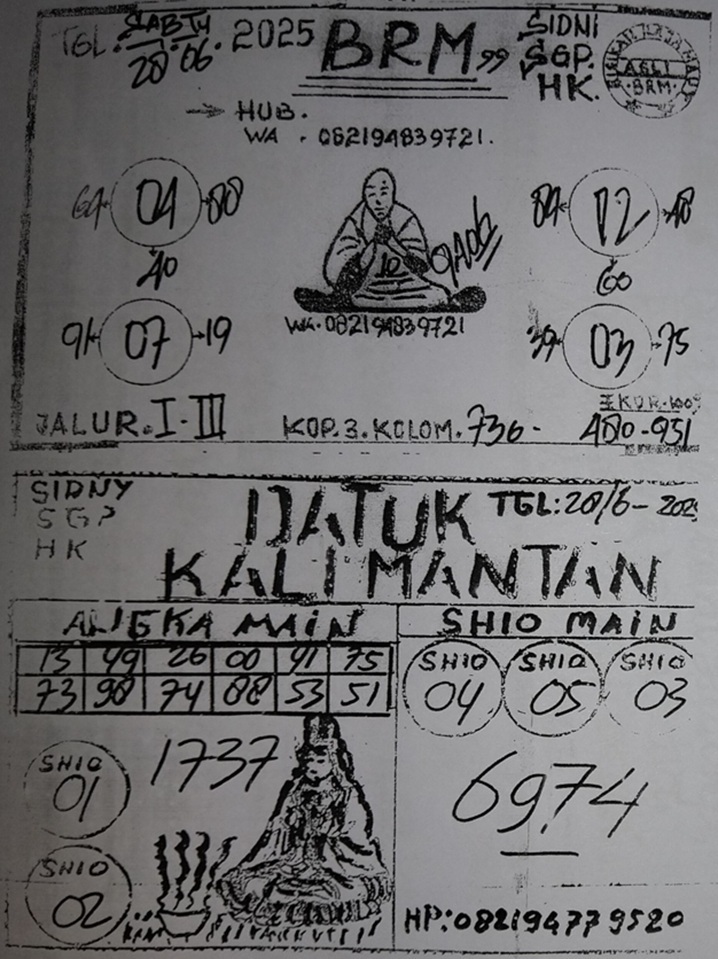 TGL. SABTU 28 06. 2025
BRM 99
SIDNI
SGP.
HK.
ASLI
BRM
→ HUB.
WA . 082194839721.
64 04 80
40
84 12 48
60
10
WA. 082194839721
91 07 19
39 03 75
JALUR. I-III
KOP. 3. KOLOM. 736-
EKOR. 100%
480-951
SIDNY
SGP
HK
DATUK
KALIMANTAN
TGL: 28/6-2025
ANGKA MAIN
13 49 26 00 41 75
73 98 74 88 53 51
SHIO MAIN
SHIO 04
SHIO 05
SHIO 03
SHIO 01
1737
6974
SHIO 02
HP: 082194779520